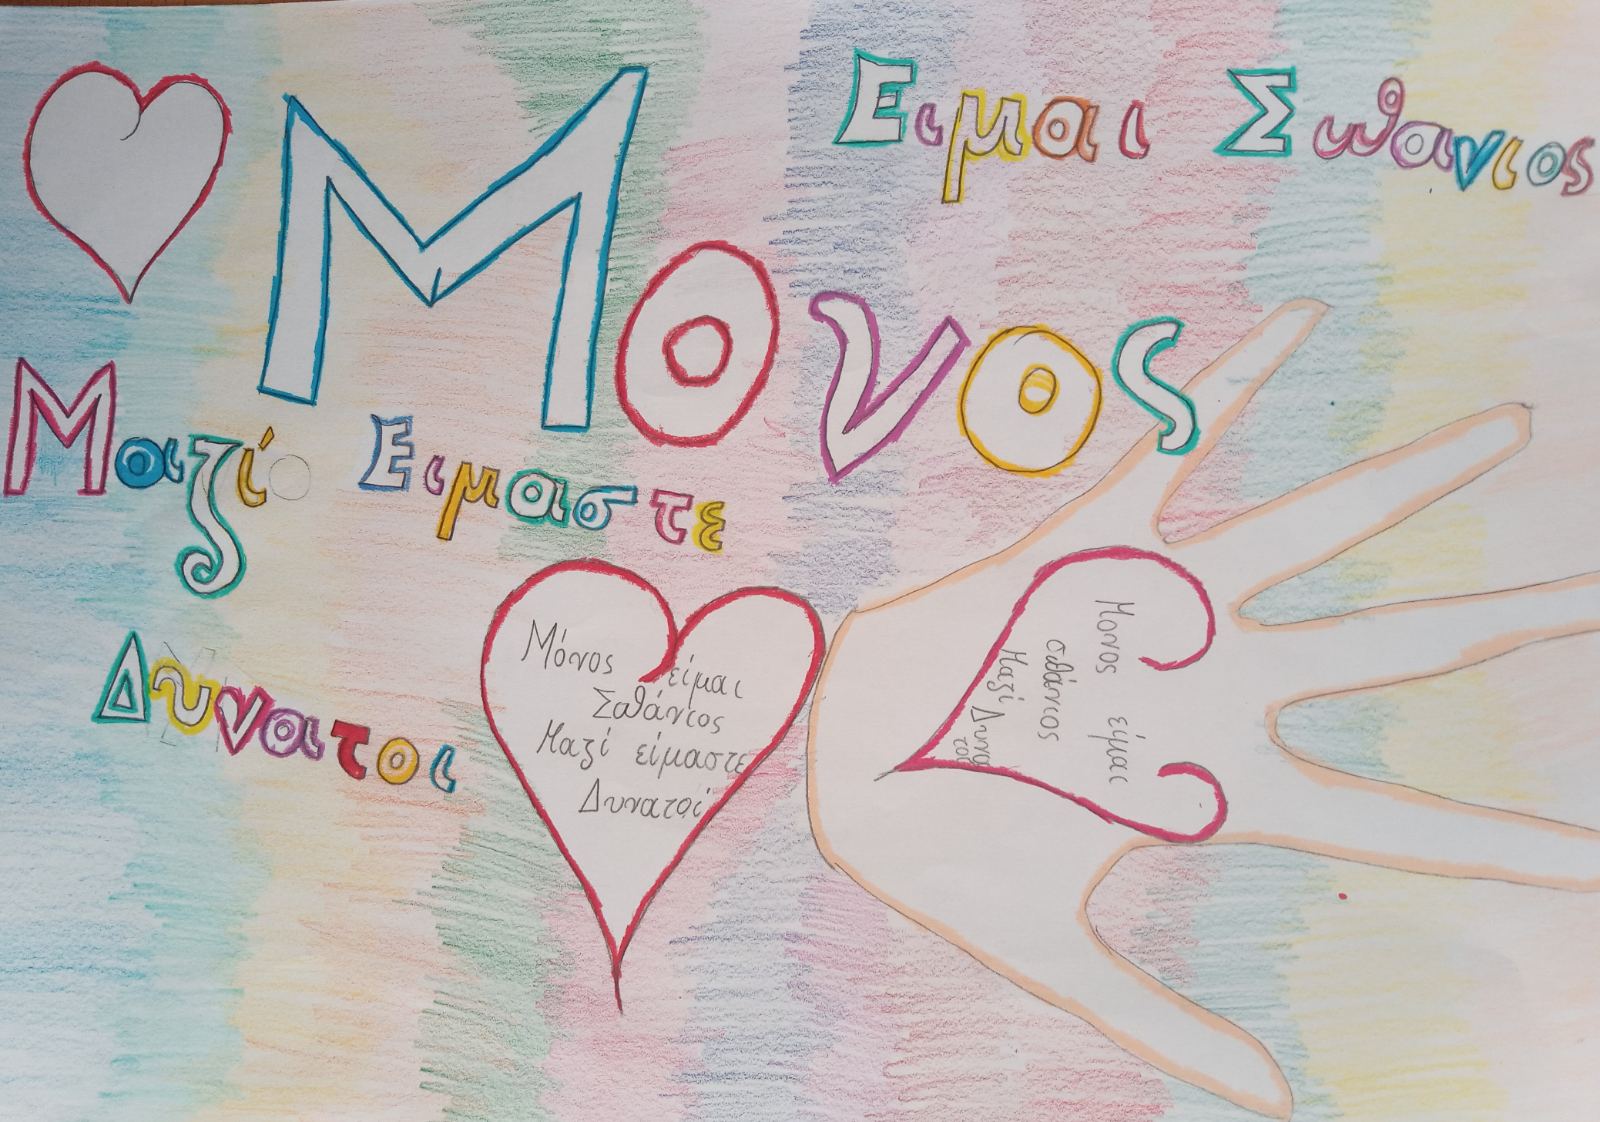 Ειμαι Σπανιος
Μονος
Μαζί Ειμαστε
Δυνατοι
Μόνος είμαι
Σπάνιος
Μαζί είμαστε
Δυνατοί
Μονος είμαι
σπάνιος
Μαζί Δυνα
τοί